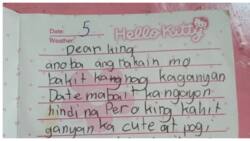 Date: 5
Weather:
Hello Kitty
Dear king
ano ba ang nakain mo
bakit kang nag kaganyan
Date mabait kangayon
hindi ng Pero king kahit
ganyan ka cute at pogi